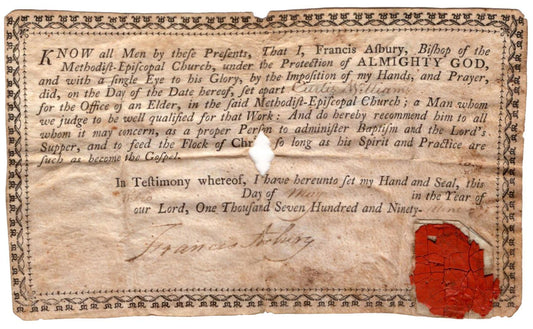 KNOW all Men by theſe Preſents, That I, Francis Aſbury, Biſhop of the
Methodiſt-Epiſcopal Church, under the Protection of ALMIGHTY GOD,
and with a ſingle Eye to his Glory, by the Impoſition of my Hands, and Prayer,
did, on the Day of the Date hereof, ſet apart Curtis Williams
for the Office of an Elder, in the ſaid Methodiſt-Epiſcopal Church; a Man whom
we judge to be well qualified for that Work: And do hereby recommend him to all
whom it may concern, as a proper Perſon to adminiſter Baptiſm and the Lord's
Supper, and to feed the Flock of Chr ſo long as his Spirit and Practice are
ſuch as become the Goſpel.
In Teſtimony whereof, I have hereunto ſet my Hand and Seal, this
Day of in the Year of
our Lord, One Thouſand Seven Hundred and Ninety-
Francis Asbury